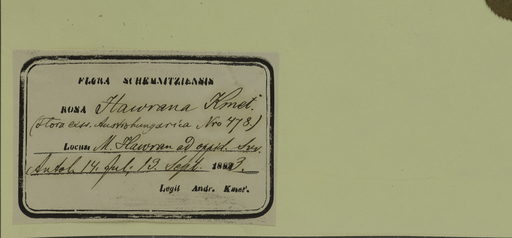 FLORA SCHEMNITZIENSIS
ROSA Hawrana Kmet.
(Flora exss. Austrohungarica Nro 478.)
Locus M. Hawran ad
Antol. 14. Jul. 13. Sept. 1883.
Legit Andr. Kmeť.